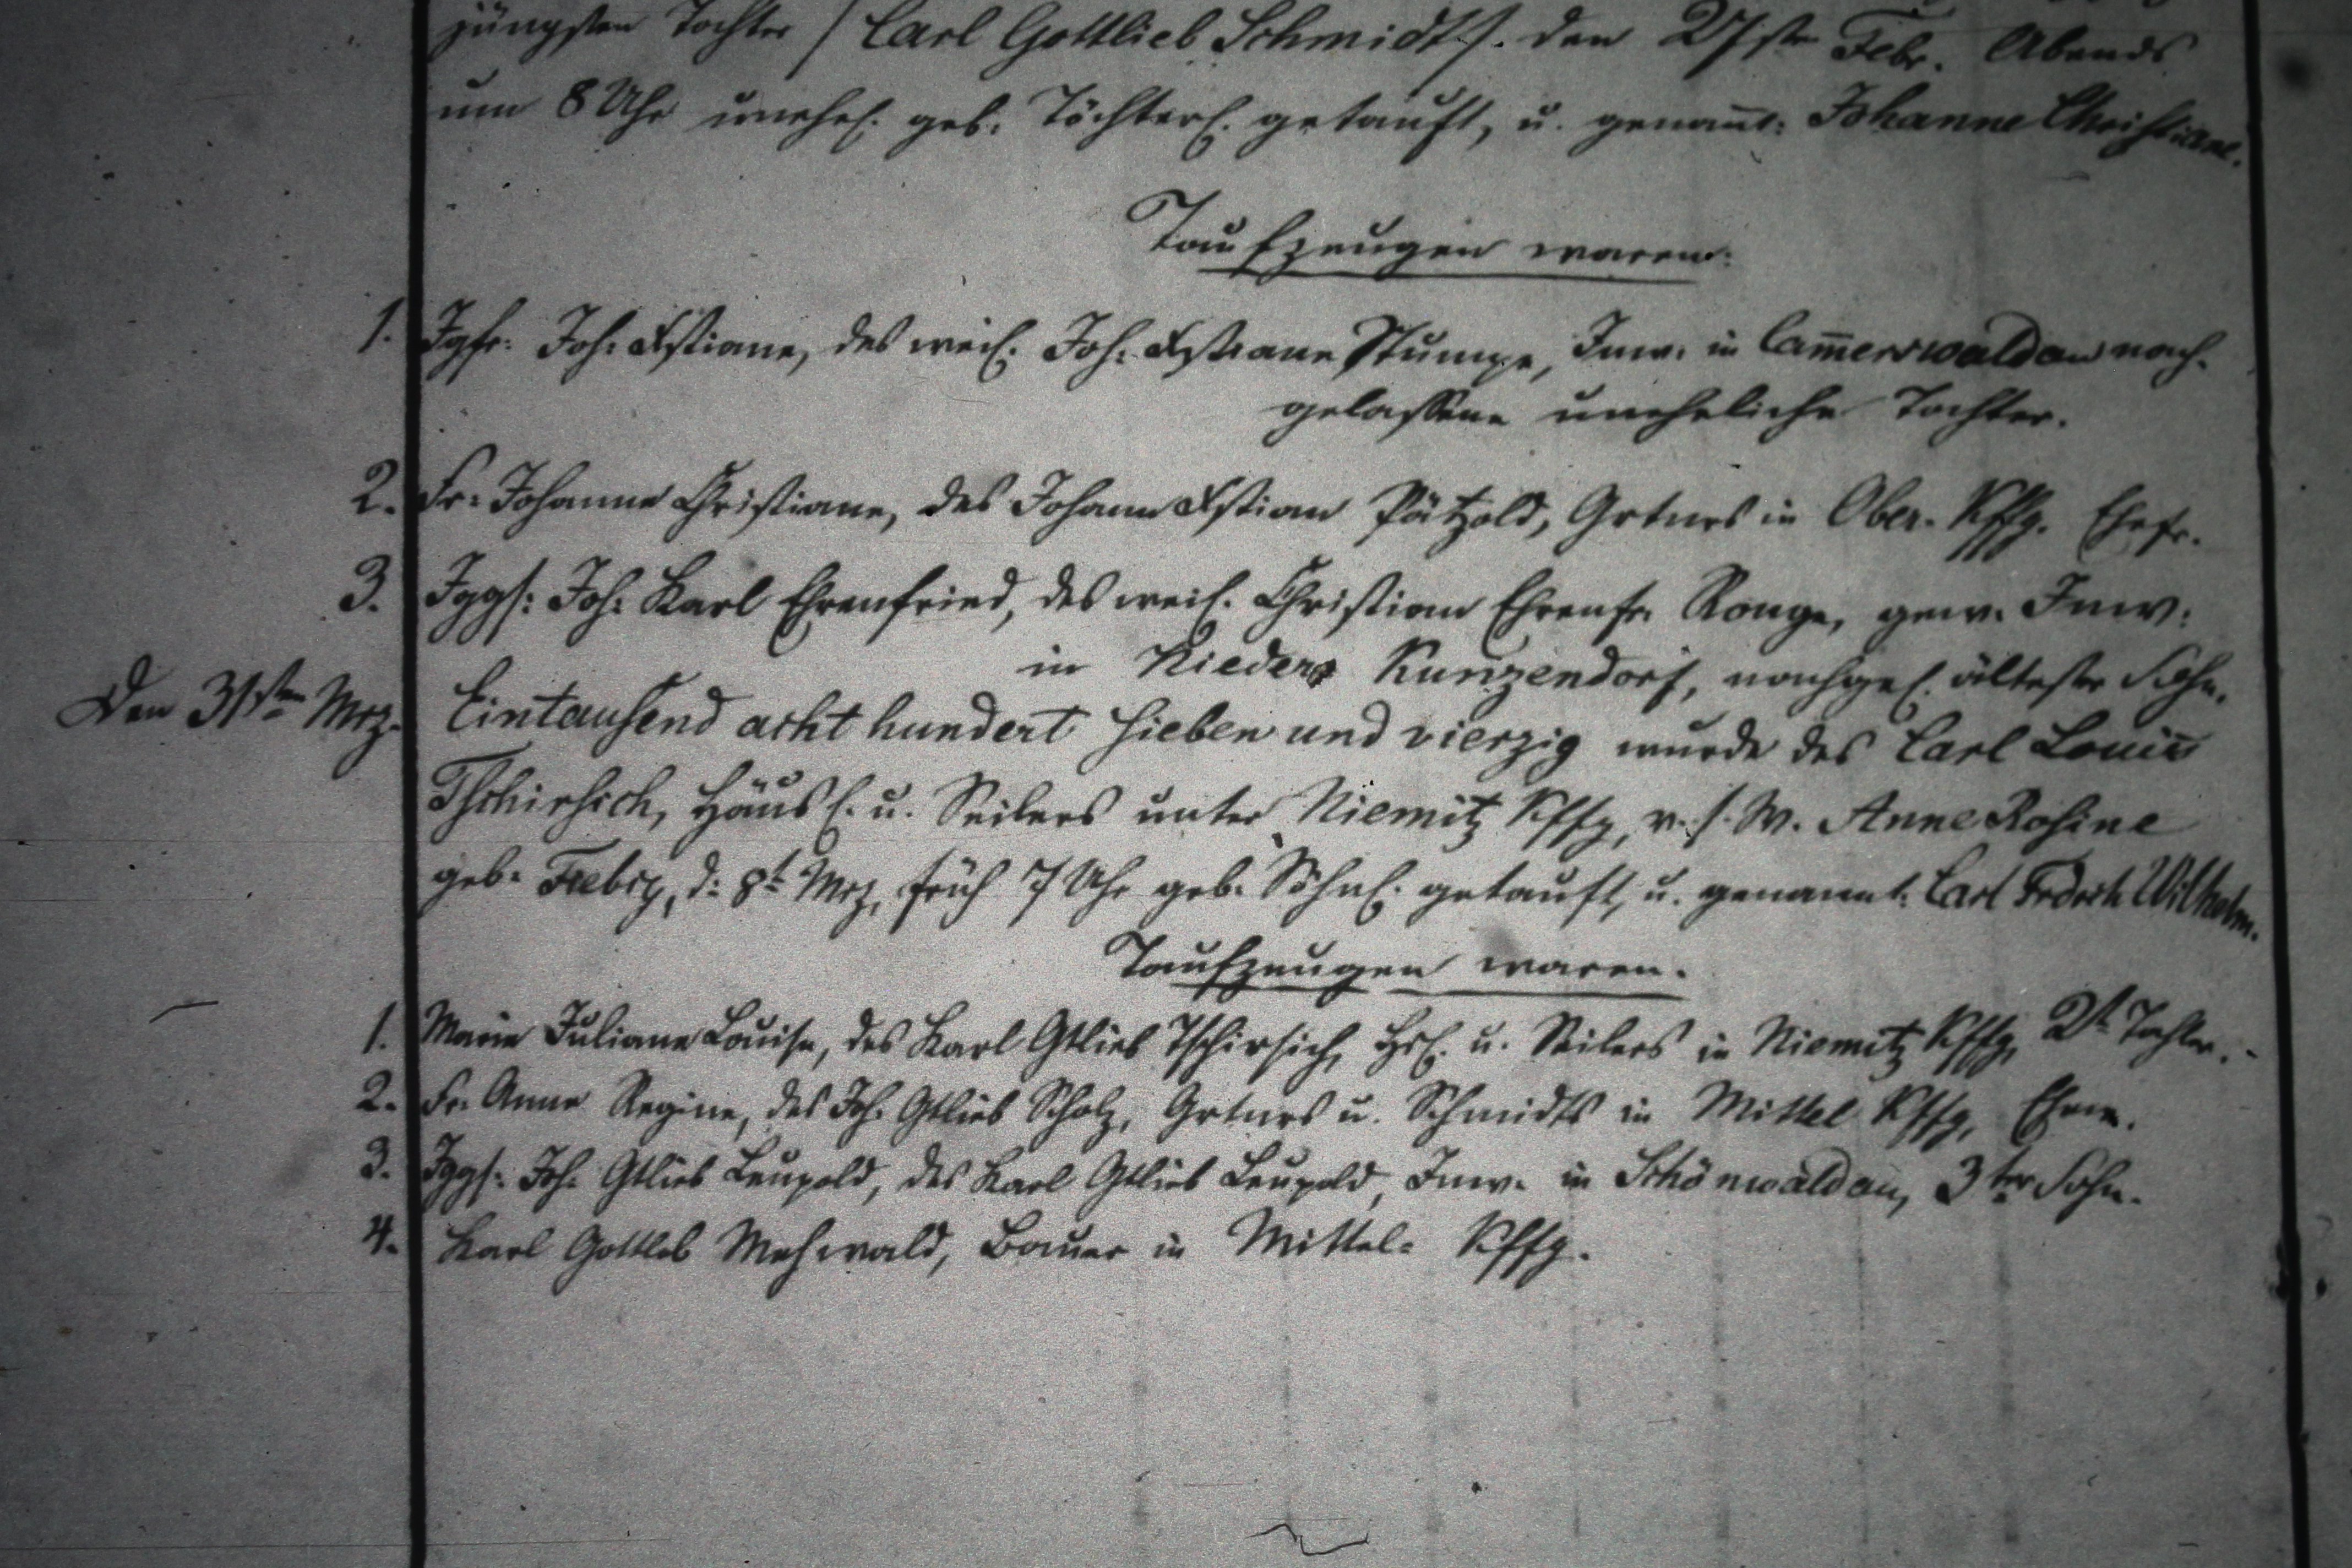 jüngsten Tochter /: Carl Gottlieb Schmidt :/. den 27sten Febr. Abends
um 8 Uhr unehel. geb. Töchterl. getauft, u. genan̄t: Johanne Christiane.
Taufzeugen waren:
1. Jgfr. Joh: Xstiane, des weil. Joh: Xstiane Stumpe, Inw. in Cam̄erswaldau nach-
gelassene uneheliche Tochter.
2. Fr. Johanne Christiane, des Johann Xstian Pätzold, Grtners in Ober- Kffg. Ehefr.
3. Jggs: Joh: Karl Ehrenfried, des weil. Christian Ehrenfr. Ronge, gew. Inw:
in Nieder Kunzendorf, nachgel. ältester Sohn.
Den 31sten Mrz. Eintausend acht hundert sieben und vierzig wurde des Carl Louis
Tschirsich, Häusl. u. Seilers unter Niemitz Kffg, v. s. W. Anne Rosine
geb. Feebig, d: 8t Mrz, früh 7 Uhr geb. Söhnl. getauft, u. genannt: Carl Frdrch Wilhelm.
Taufzeugen waren.
1. Marie Juliane Louise, des Karl Gtlieb Tschirsich, Hsl. u. Seilers in Niemitz Kffg, 2te Tochter.
2. Fr. Anne Regine, des Joh. Gtlieb Scholz, Grtners u. Schmidts in Mittel Kffg, Ehew.
3. Jggs: Joh. Gtlieb Leupold, des Karl Gtlieb Leupold, Inw. in Schönwaldau, 3ter Sohn.
4. Karl Gottlob Mehwald, Bauer in Mittel- Kffg.